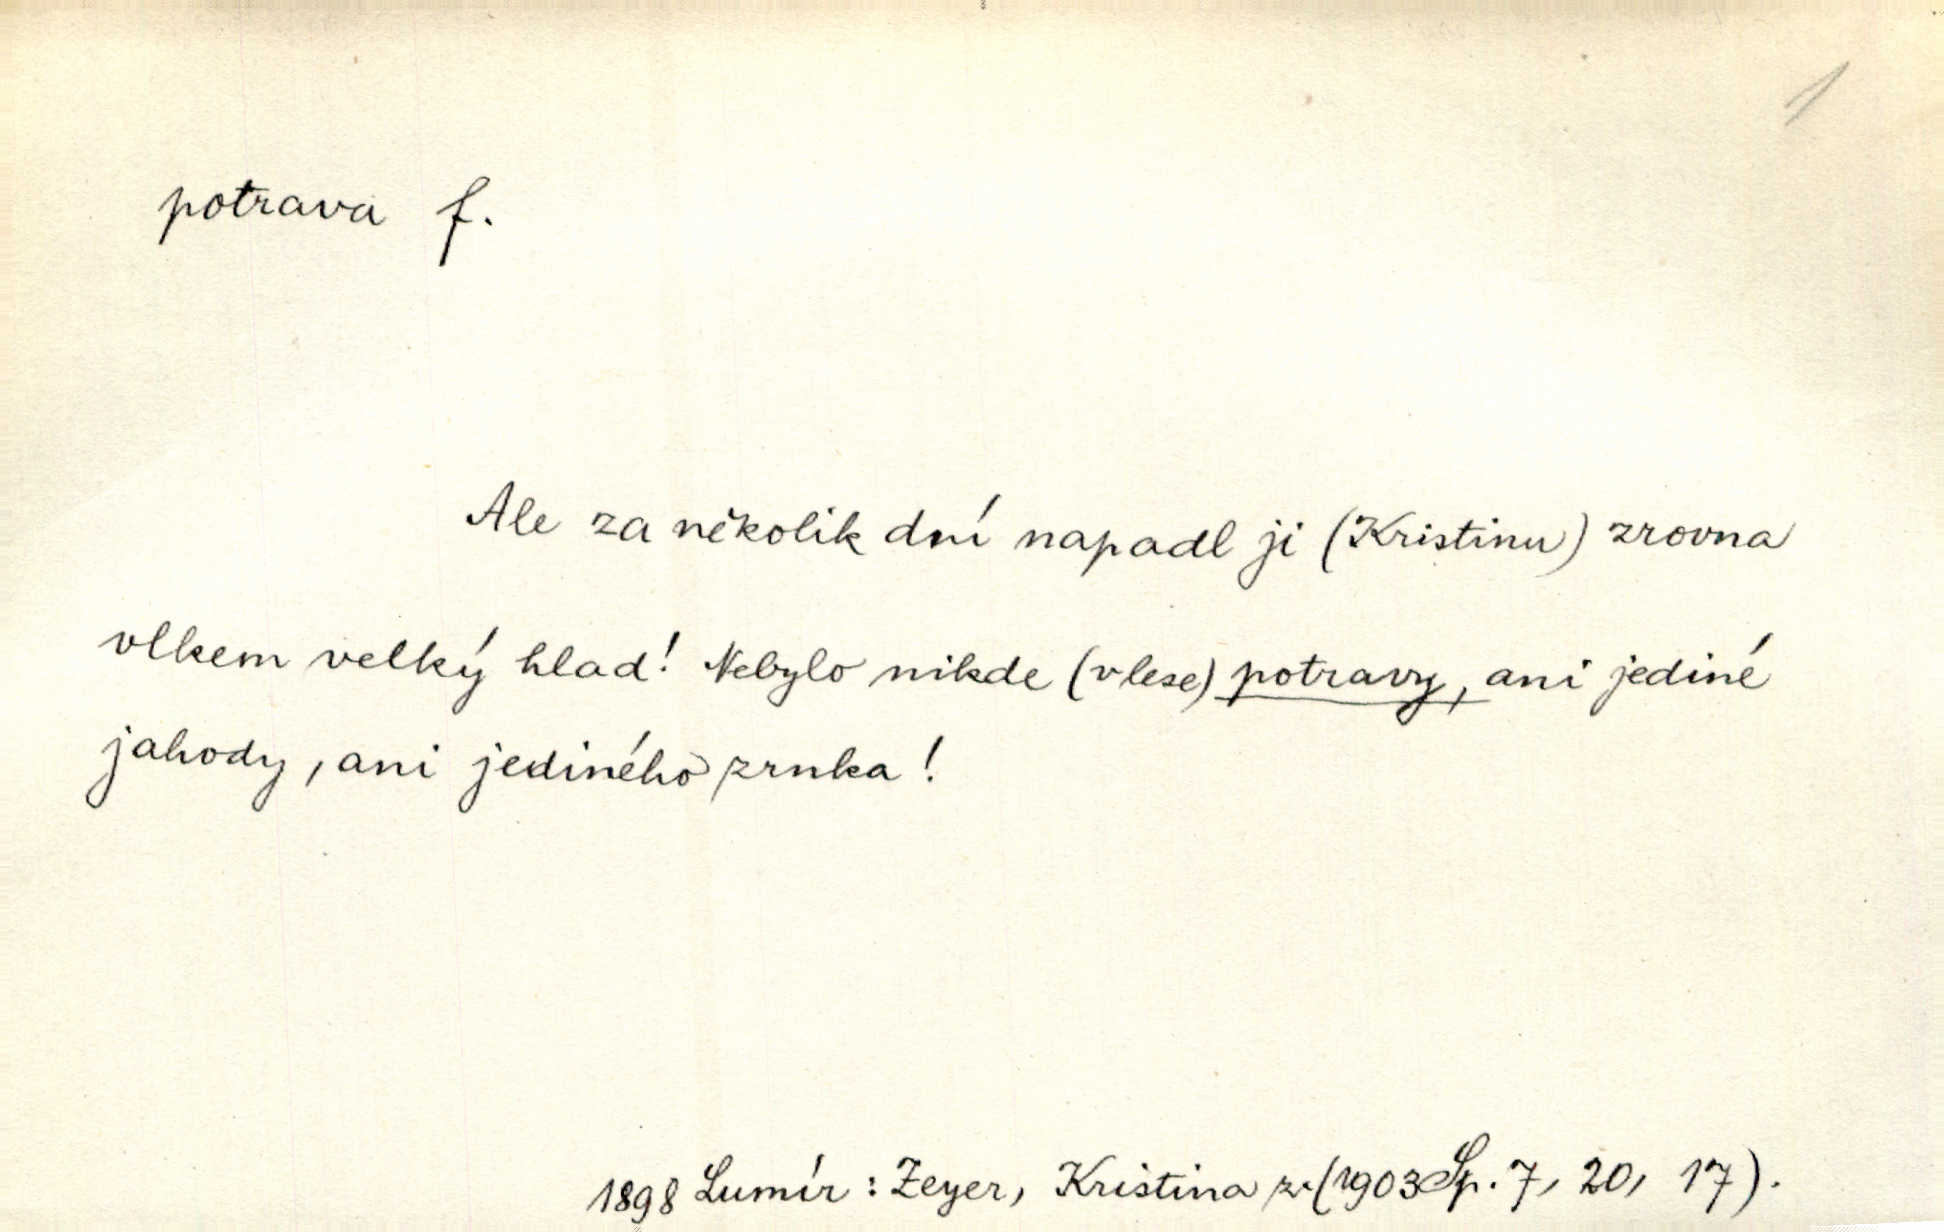 1
potrava f.
Ale za několik dní napadl ji (Kristinu) zrovna
vlkem velký hlad! Nebylo nikde (v lese) potravy, ani jediné
jahody, ani jediného zrnka!
1898 Lumír: Zeyer, Kristina z. (1903 Sp. 7, 20, 17).